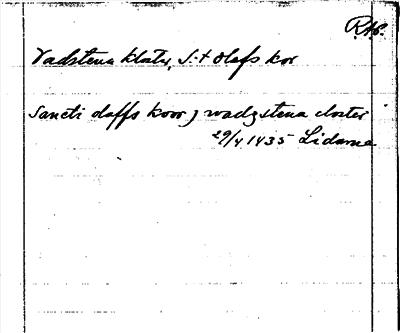 RAP.
Vadstena kloster, S:t Olafs kor
Sancti olaffs koor j wadzstena closter
29/4 1435 Lidarna